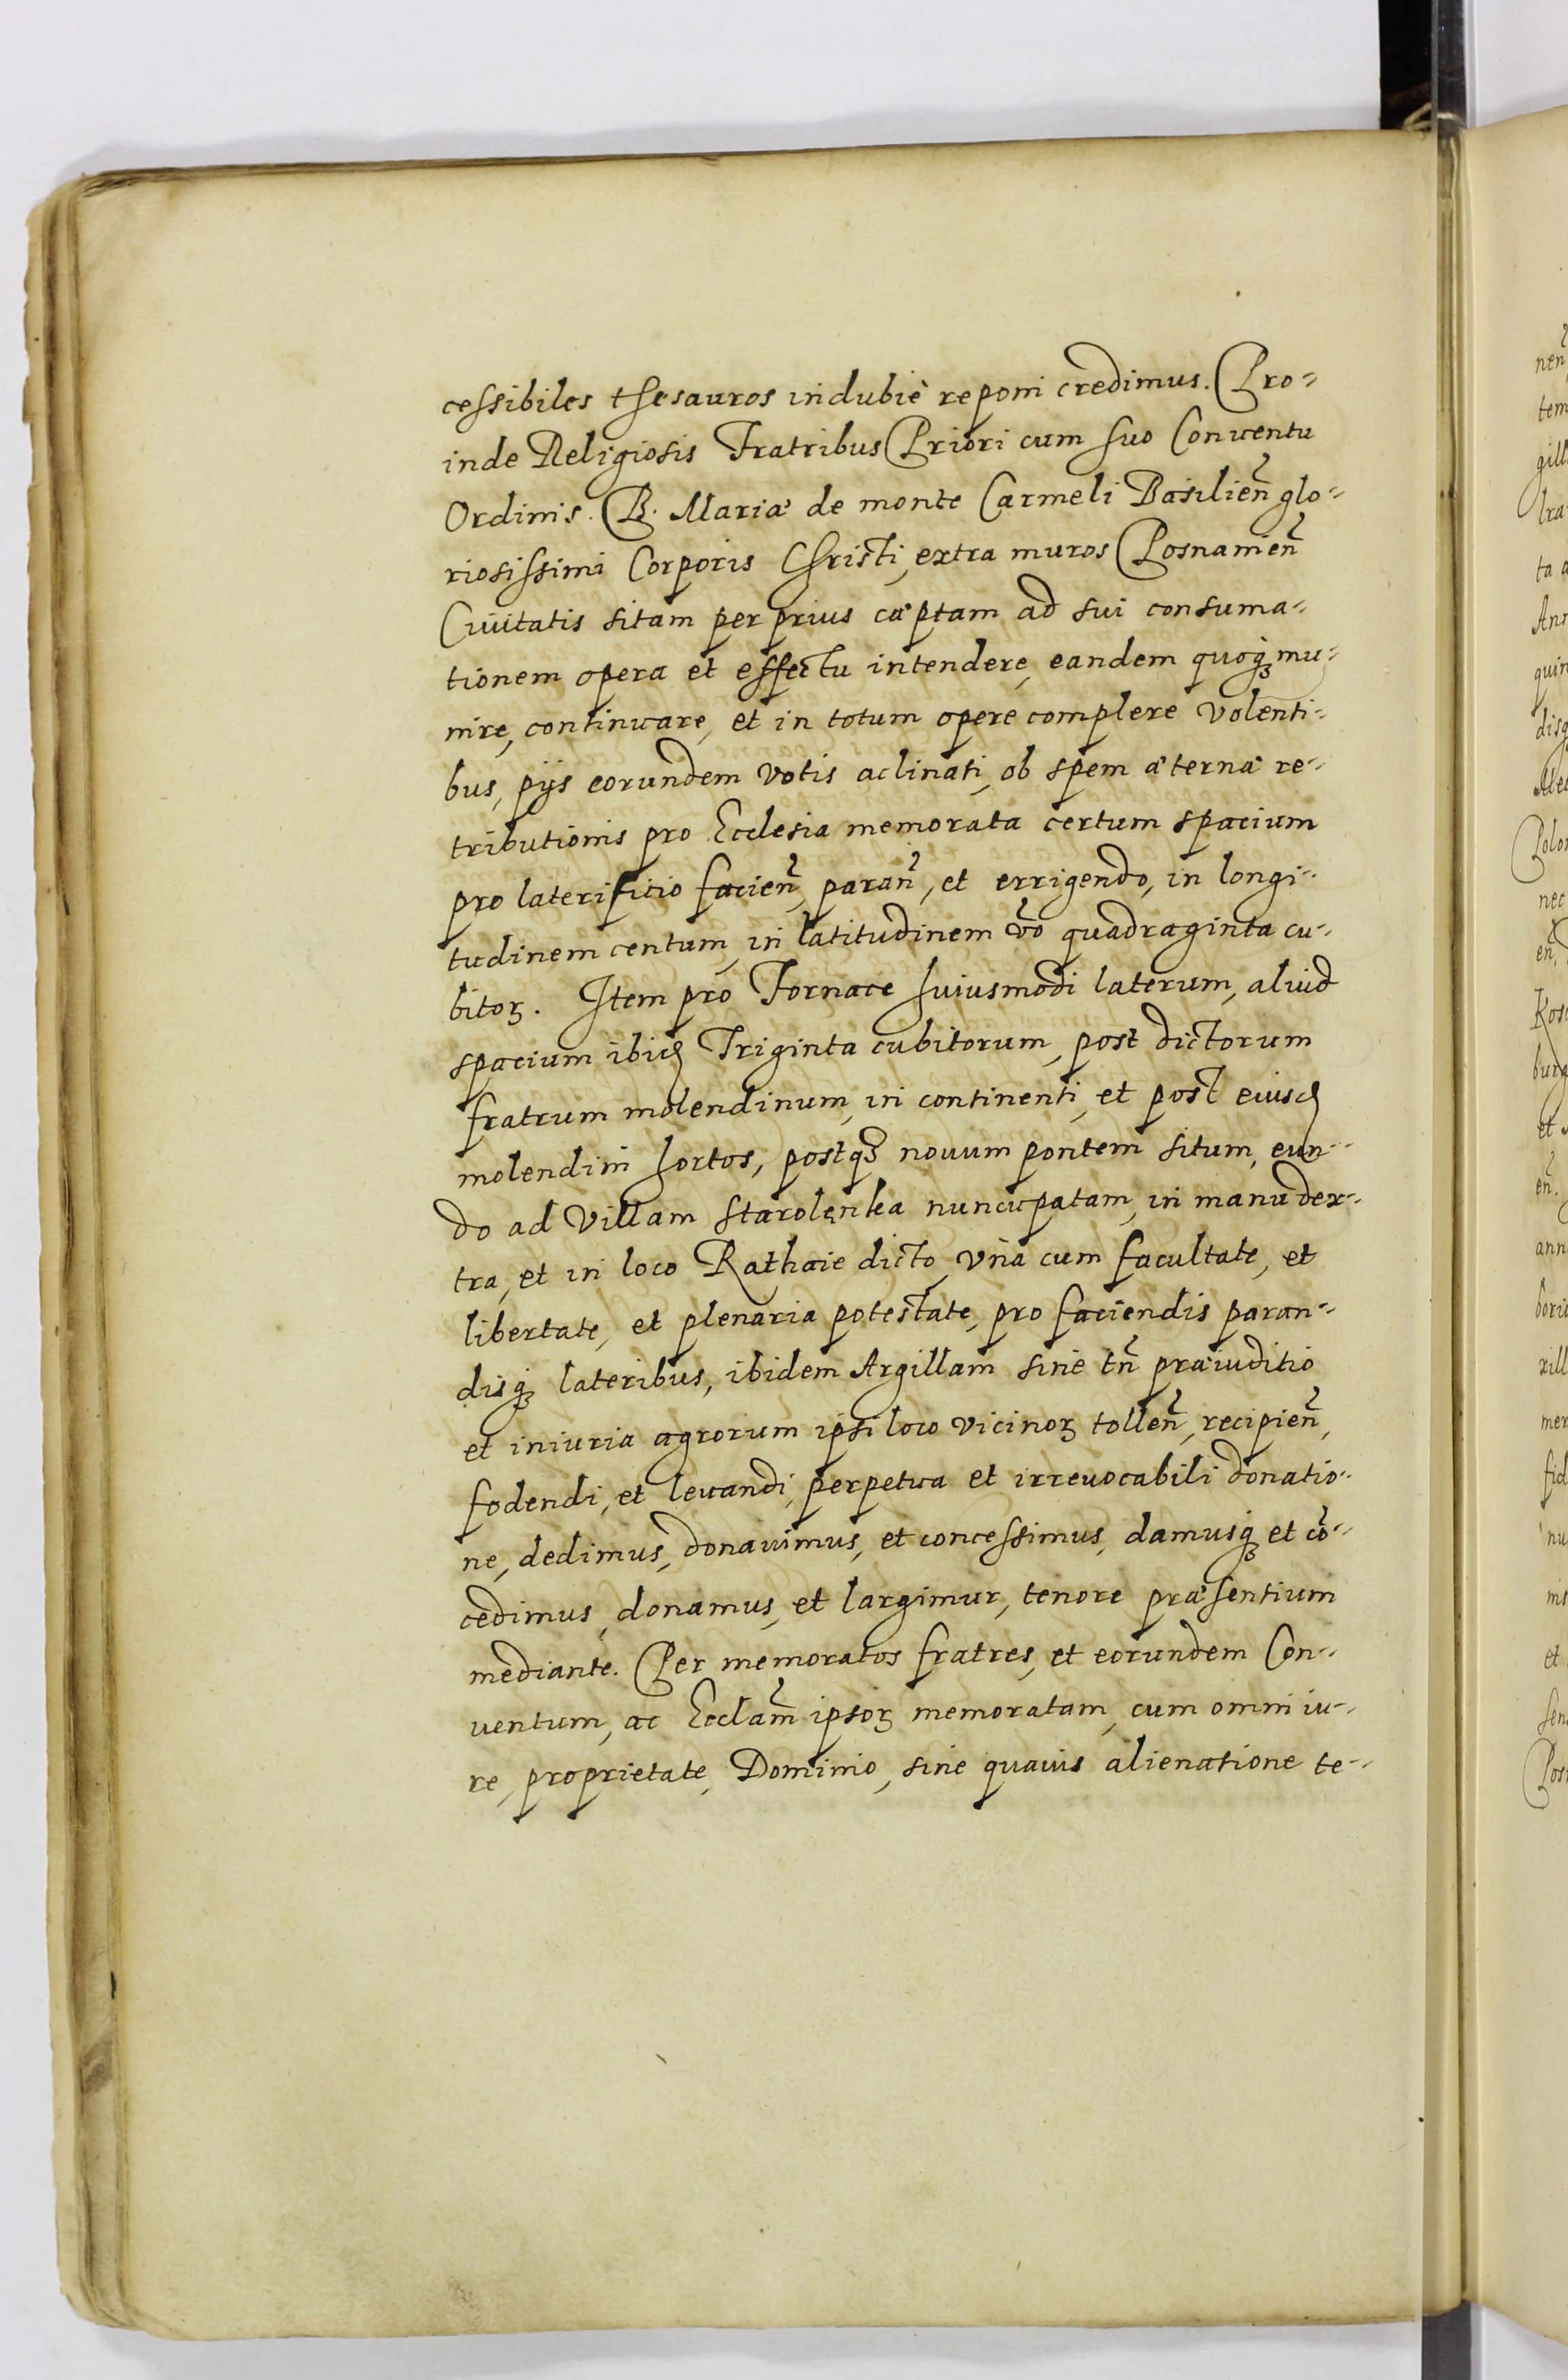 cessibiles thesauros indubiè reponi credimus. Pro-
inde Religiosis Fratribus Priori cum suo Conuentu
Ordinis. B. Mariæ de monte Carmeli Basilień glo-
riosissimi Corporis Christi, extra muros Posnanień
Ciuitatis sitam per prius cæptam ad sui consuma-
tionem opera et effectu intendere, eandem quoq; mu-
nire, continuare, et in totum opere complere volenti-
bus, pijs eorundem votis aclinati, ob spem æternæ re-
tributionis pro Ecclesia memorata certum spacium
pro laterificio facień, parań, et errigendo, in longi-
tudinem centum, in latitudinem v̄o quadraginta cu-
bitoꝝ. Item pro Fornace huiusmodi laterum, aliud
spacium ibid Triginta cubitorum, post dictorum
fratrum molendinum, in continenti, et post eiusd
molendini hortos, postq; nouum pontem situm, eun-
do ad Villam Starolęnka nuncupatam, in manu dex-
tra, et in loco Rathaie dicto, vna cum facultate, et
libertate, et plenaria potestate, pro faciendis paran-
disq; lateribus, ibidem Argillam sine tn̄ præiuditio
et iniuria agrorum ipsi loco vicinoꝝ tolleń, recipień,
fodendi, et leuandi, perpetua et irreuocabili donatio-
ne, dedimus, donauimus, et concessimus, damusq; et cō-
cedimus, donamus, et largimur, tenore præsentium
mediante. Per memoratos fratres, et eorundem Con-
uentum, ac Eccl̄am ipsoꝝ memoratam, cum omni iu-
re, proprietate, Dominio, sine quauis alienatione te-